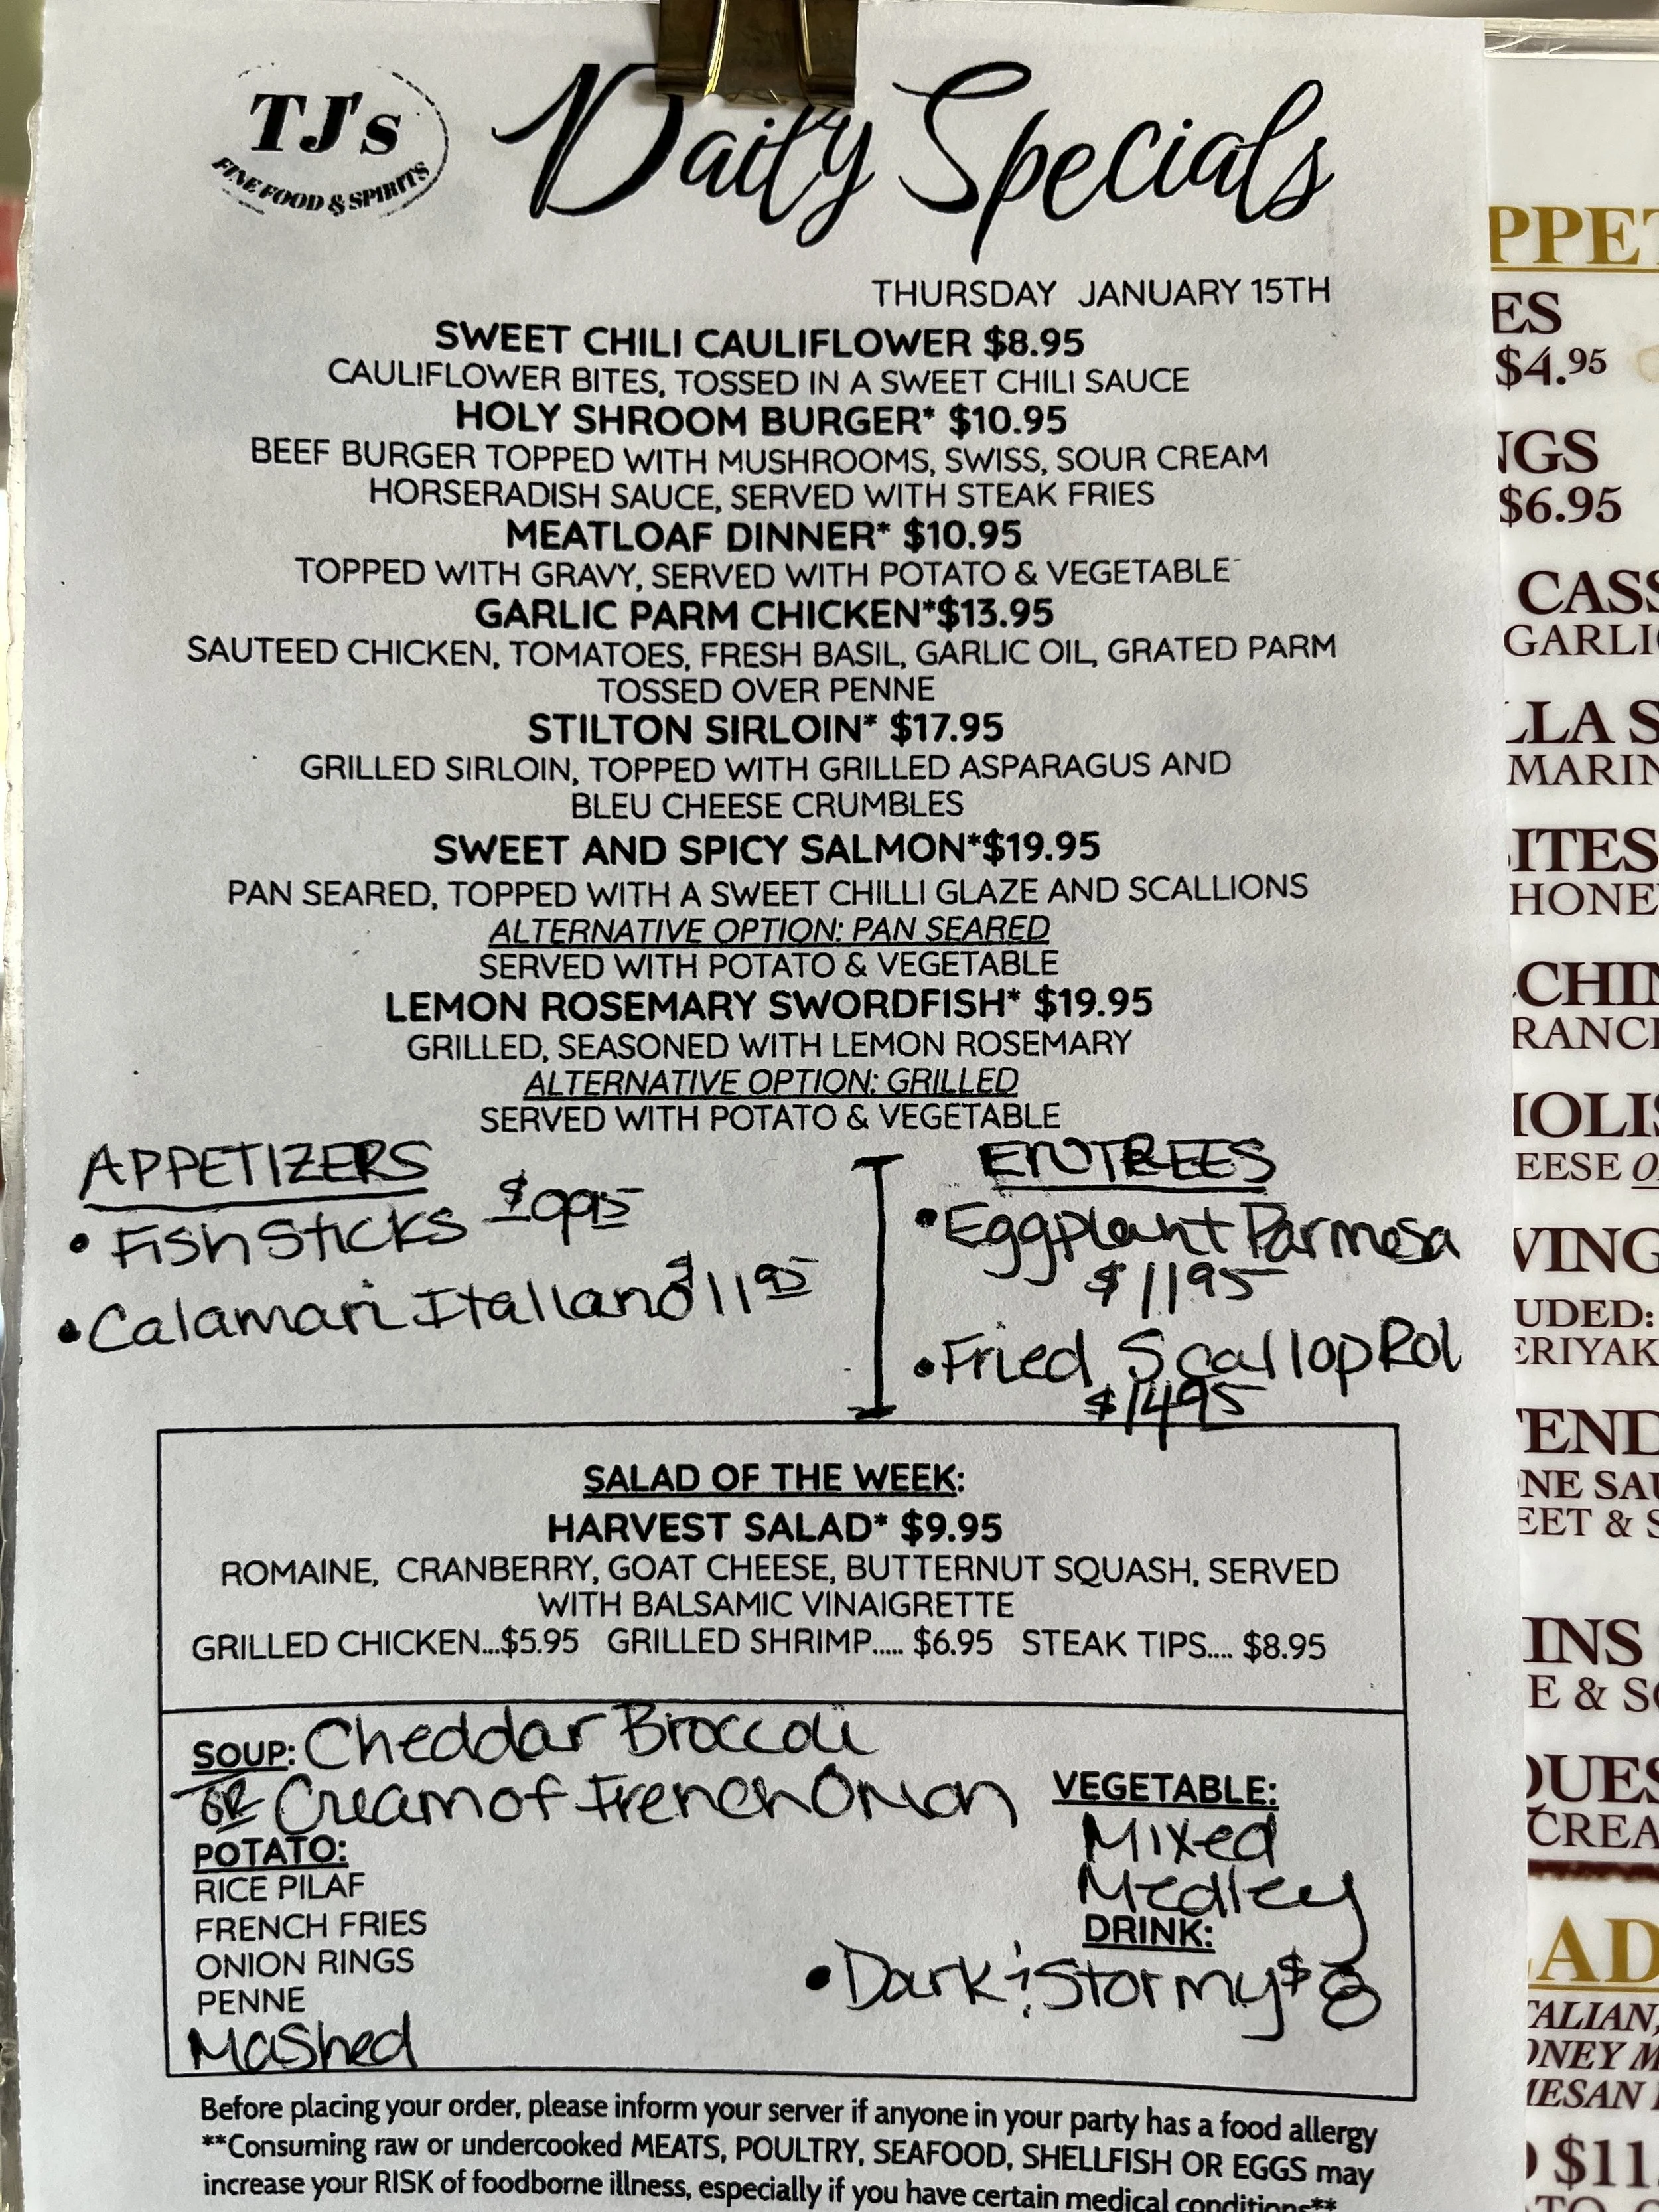 TJ's
FINE FOOD & SPIRITS
Daily Specials
THURSDAY JANUARY 15TH
SWEET CHILI CAULIFLOWER $8.95
CAULIFLOWER BITES, TOSSED IN A SWEET CHILI SAUCE
HOLY SHROOM BURGER* $10.95
BEEF BURGER TOPPED WITH MUSHROOMS, SWISS, SOUR CREAM
HORSERADISH SAUCE, SERVED WITH STEAK FRIES
MEATLOAF DINNER* $10.95
TOPPED WITH GRAVY, SERVED WITH POTATO & VEGETABLE
GARLIC PARM CHICKEN*$13.95
SAUTEED CHICKEN, TOMATOES, FRESH BASIL, GARLIC OIL, GRATED PARM
TOSSED OVER PENNE
STILTON SIRLOIN* $17.95
GRILLED SIRLOIN, TOPPED WITH GRILLED ASPARAGUS AND
BLEU CHEESE CRUMBLES
SWEET AND SPICY SALMON*$19.95
PAN SEARED, TOPPED WITH A SWEET CHILLI GLAZE AND SCALLIONS
ALTERNATIVE OPTION: PAN SEARED
SERVED WITH POTATO & VEGETABLE
LEMON ROSEMARY SWORDFISH* $19.95
GRILLED, SEASONED WITH LEMON ROSEMARY
ALTERNATIVE OPTION: GRILLED
SERVED WITH POTATO & VEGETABLE
APPETIZERS
• Fish Sticks $995
• Calamari Italiano $1195
ENTREES
• Eggplant Parmesa
$1195
• Fried Scallop Rol
$1495
SALAD OF THE WEEK:
HARVEST SALAD* $9.95
ROMAINE, CRANBERRY, GOAT CHEESE, BUTTERNUT SQUASH, SERVED
WITH BALSAMIC VINAIGRETTE
GRILLED CHICKEN...$5.95 GRILLED SHRIMP..... $6.95 STEAK TIPS.... $8.95
SOUP: Cheddar Broccoli
OR Cream of French Onion
POTATO:
RICE PILAF
FRENCH FRIES
ONION RINGS
PENNE
Mashed
VEGETABLE:
Mixed
Medley
DRINK:
• Dark & Stormy $8
Before placing your order, please inform your server if anyone in your party has a food allergy
**Consuming raw or undercooked MEATS, POULTRY, SEAFOOD, SHELLFISH OR EGGS may
increase your RISK of foodborne illness, especially if you have certain medical conditions**
PPET
ES
$4.95
NGS
$6.95
CASS
GARLI
LLA S
MARIN
ITES
HONE
CHIN
RANC
HOLIS
EESE O
VING
UDED:
ERIYAK
TEND
NE SAU
EET & S
INS
E & S
QUES
CREA
AD
TALIAN,
ONEY M
MESAN
$11.